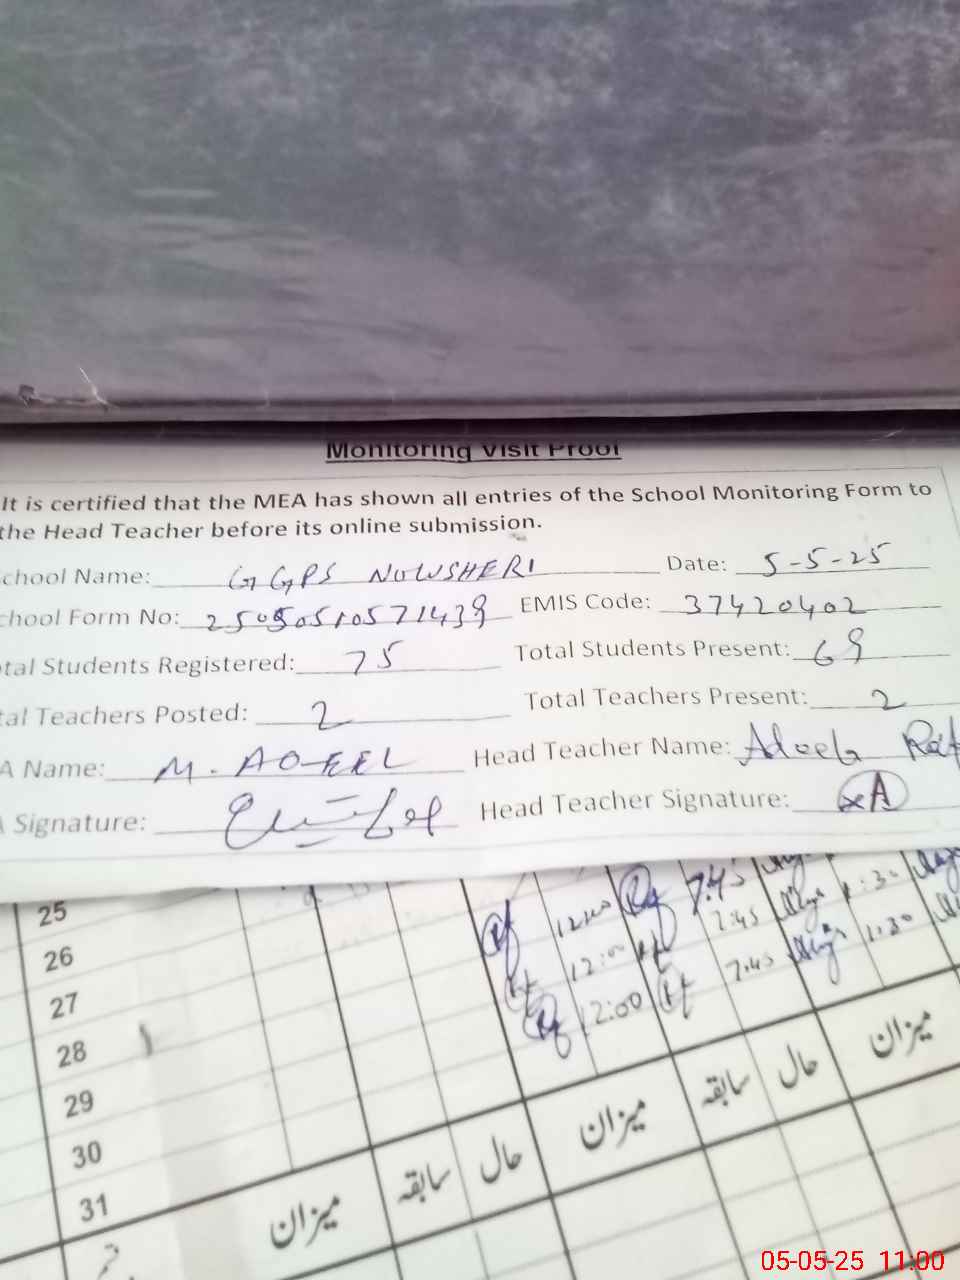 Monitoring Visit Proof
It is certified that the MEA has shown all entries of the School Monitoring Form to
the Head Teacher before its online submission.
chool Name: GGPS NOWSHERI Date: 5-5-25
chool Form No: EMIS Code: 37420402
tal Students Registered: 75 Total Students Present: 69
tal Teachers Posted: 2 Total Teachers Present: 2
A Name: M. AQEEL Head Teacher Name: Adeela
Signature: Head Teacher Signature:
25 12:00 7:45 1:30
26 12:00 7:45 1:30
27 12:00 7:45
28
29
30
31
میزان سابقہ حال میزان سابقہ حال میزان
05-05-25 11:00